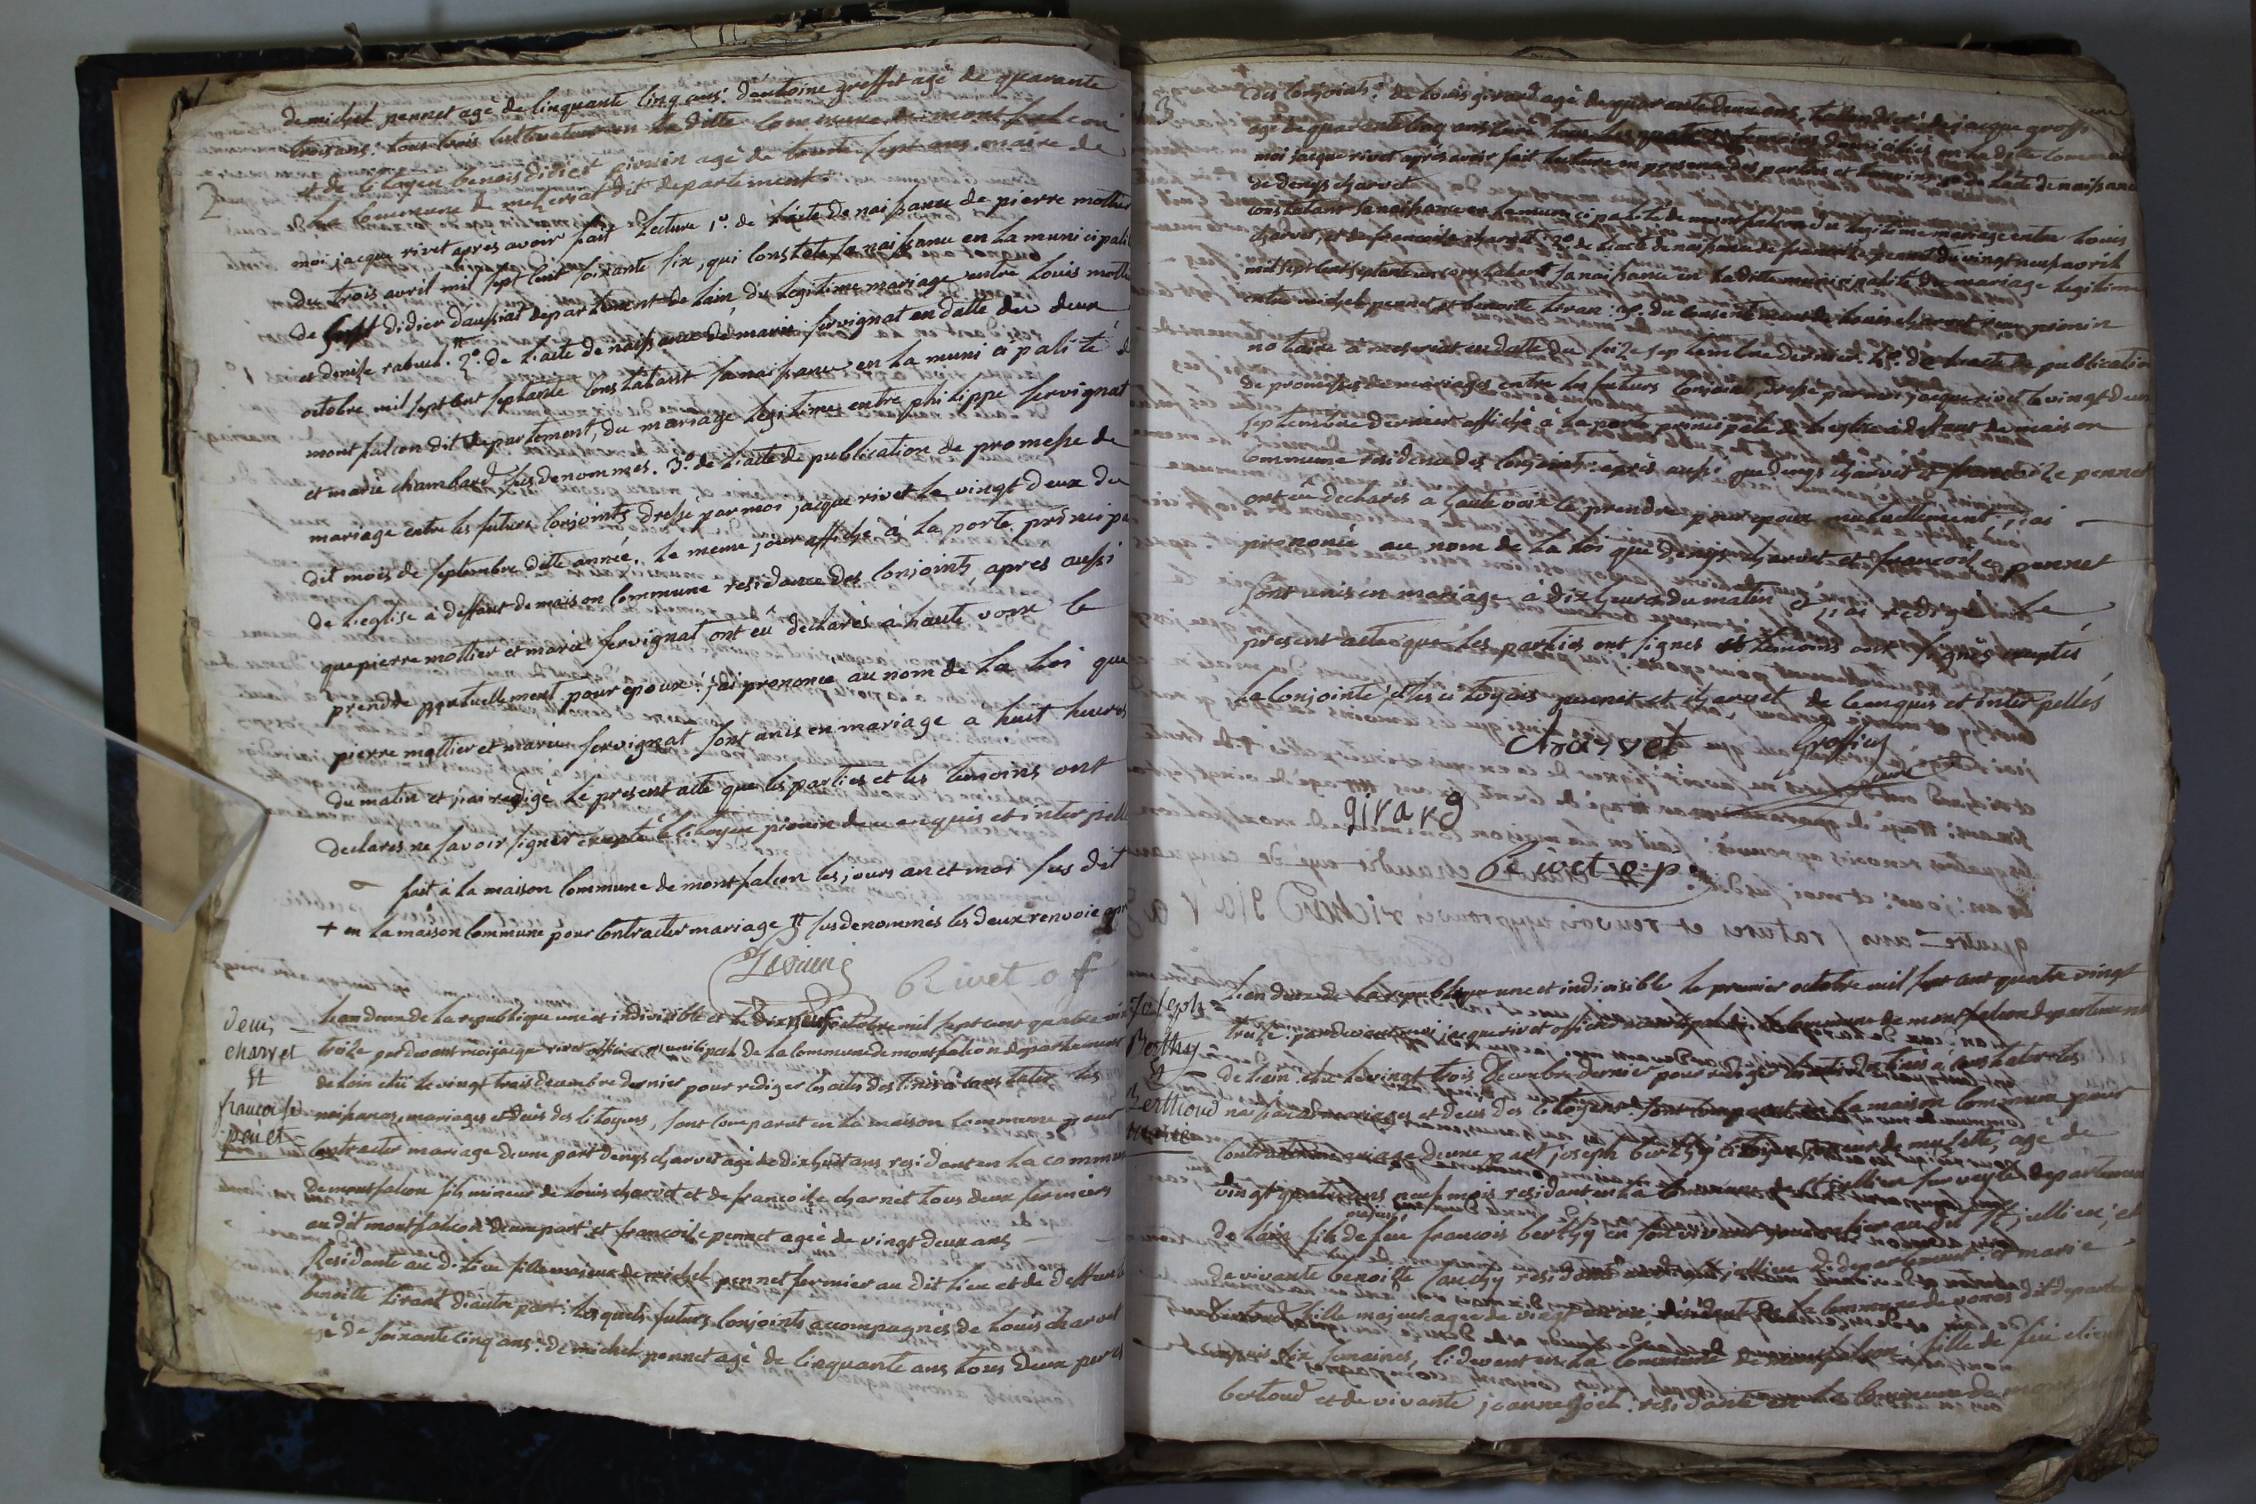 de michel pennet agé de cinquante cinq ans: d'antoine greffet agé de quarante
trois ans: tous trois cultivateur en la ditte commune de montfalcon
et de citoyen benois didiet pionin agé de trente sept ans maire de
la commune de mezeriat dit departement
moi jacque rivet après avoir fait lecture 1º. de l'acte de naissance de pierre mottier
du trois avril mil sept cent soixante six, qui constate sa naissance en la municipali
de st didier d'aussiat departement de l'ain du legitime mariage entre louis mottier
et denise rabuel. 2º. de l'acte de naissance de marie servignat en datte du deux
octobre mil sept cent septante constatant sa naissance en la municipalité de
montfalcon dit departement, du mariage legitimes entre philippe servignat
et marie chambard susdenommes. 3º. de l'acte de publication de promesse de
mariage entre les futurs conjoints dressé par moi jacque rivet le vingt deux du
dit mois de septembre ditte année. le meme jour affiché à la porte principa
de l'eglise à deffaut de maison commune residance des conjoints, apres aussi
que pierre mottier et marie servignat ont eû declarés à haute voix le
prendre mutuellement pour epoux: j'ai prononcé au nom de la loi que
pierre mottier et marie servignat sont unis en mariage a huit heures
du matin et j'ai redigé le present acte que les parties et les temoins ont
declarés ne savoir signer excepté le citoyen pionin de ce enquis et interpellé
fait à la maison commune de montfalcon les jours an et moi sus dit
+ en la maison commune pour contracter mariage # susdenommés les deux renvoie apr
Rivet o f
denis
charvet
et
francoise
penet
l'an deux de la republique une et indivisible et le dix neuf octobre mil sept cent quatre vin
treize par devant moi jacque rivet officier municipal de la commune de montfalcon departement
de l'ain elû le vingt trois decembre dernier pour rediger les actes destinés à constater les
naissances, mariages et décès des citoyens, sont comparut en la maison commune pour
contracter mariage d'une part denys charvet agé de dix huit ans residant en la commun
de montfalcon fils mineur de louis charvet et de francoise charnet tous deux fermiers
au dit montfalcon d'une part: et francoise pennet agée de vingt deux ans
Residante au dit lieu fille majeur de michel pennet fermier au dit lieu et de deffunte
benoitte tirant d'autre part: lesquels futurs conjoints accompagnés de louis charvet
agé de soixante cinq ans: de michel pennet agé de cinquante ans tous deux peres
des conjoints: de louis girard agé de quarante deux ans, de jacque groffi
agé de quarante cinq ans tous les quatre temoins domiciliés en la ditte commune
moi jacque rivet après avoir fait lecture en presence des parties et temoins 1º de l'acte de naissance
de denys charvet
constatant sa naissance en la municipalité de montfalcon du legitime mariage entre louis
charvet, et de francoise charnet: 2º. de l'acte de naissance de francoise pennet du vingt neuf avril
mil sept cent septante un constatant sa naissance en la ditte municipalité du mariage legitime
entre michel pennet et benoitte tiran: 3º. du consentement de louis charvet pionin
notaire à meseriat en datte du seize septembre dernier. 4º. de l'acte de publication
de promesses de mariages entre les futurs conjoint, dressé par moi jacque rivet le vingt deux
septembre dernier affiché à la porte principale de l'eglise à deffaut de maison
commune residence des conjoints: après aussi que denys charvet et francoise pennet
ont eû declarés à haute voix se prendre pour epoux mutuellement, j'ai
prononcé au nom de la loi que denys charvet et francoise pennet
sont unis en mariage à dix heures du matin et j'ai redigé le
present acte que les parties ont signés et temoins ont signés exeptés
la conjointe et les citoyens pennet et charvet de ce enquis et interpellés
Charvet
Groffier
girard
Rivet o. p.
joseph
Berthy
et
Berthoud
marie
l'an deux de la republique une et indivisible le premier octobre mil sept cent quatre vingt
treize. par devant moi jacque rivet officier municipal de la commune de montfalcon departement
de l'ain elu le vingt trois decembre dernier pour rediger les actes destinés à constater les
naissances mariages et deces des citoyens: sont comparut en la maison commune pour
contracter mariage d'une part joseph berthy citoyen joueur de musette, agé de
vingt quatre ans neuf mois residant en la commune de st jullien sur veyle departement
de l'ain fils de feu francois berthy en son vivant au dit st jullien, et
de vivante benoitte residante au dit st jullien dit departement: et marie
bertoud fille majeur agée de vingt residante en la commune de vonas dit departe
depuis six semaines, ci devant en la commune de montfalcon: fille de feu
bertoud et de vivante jeanne residante en la commune de mont